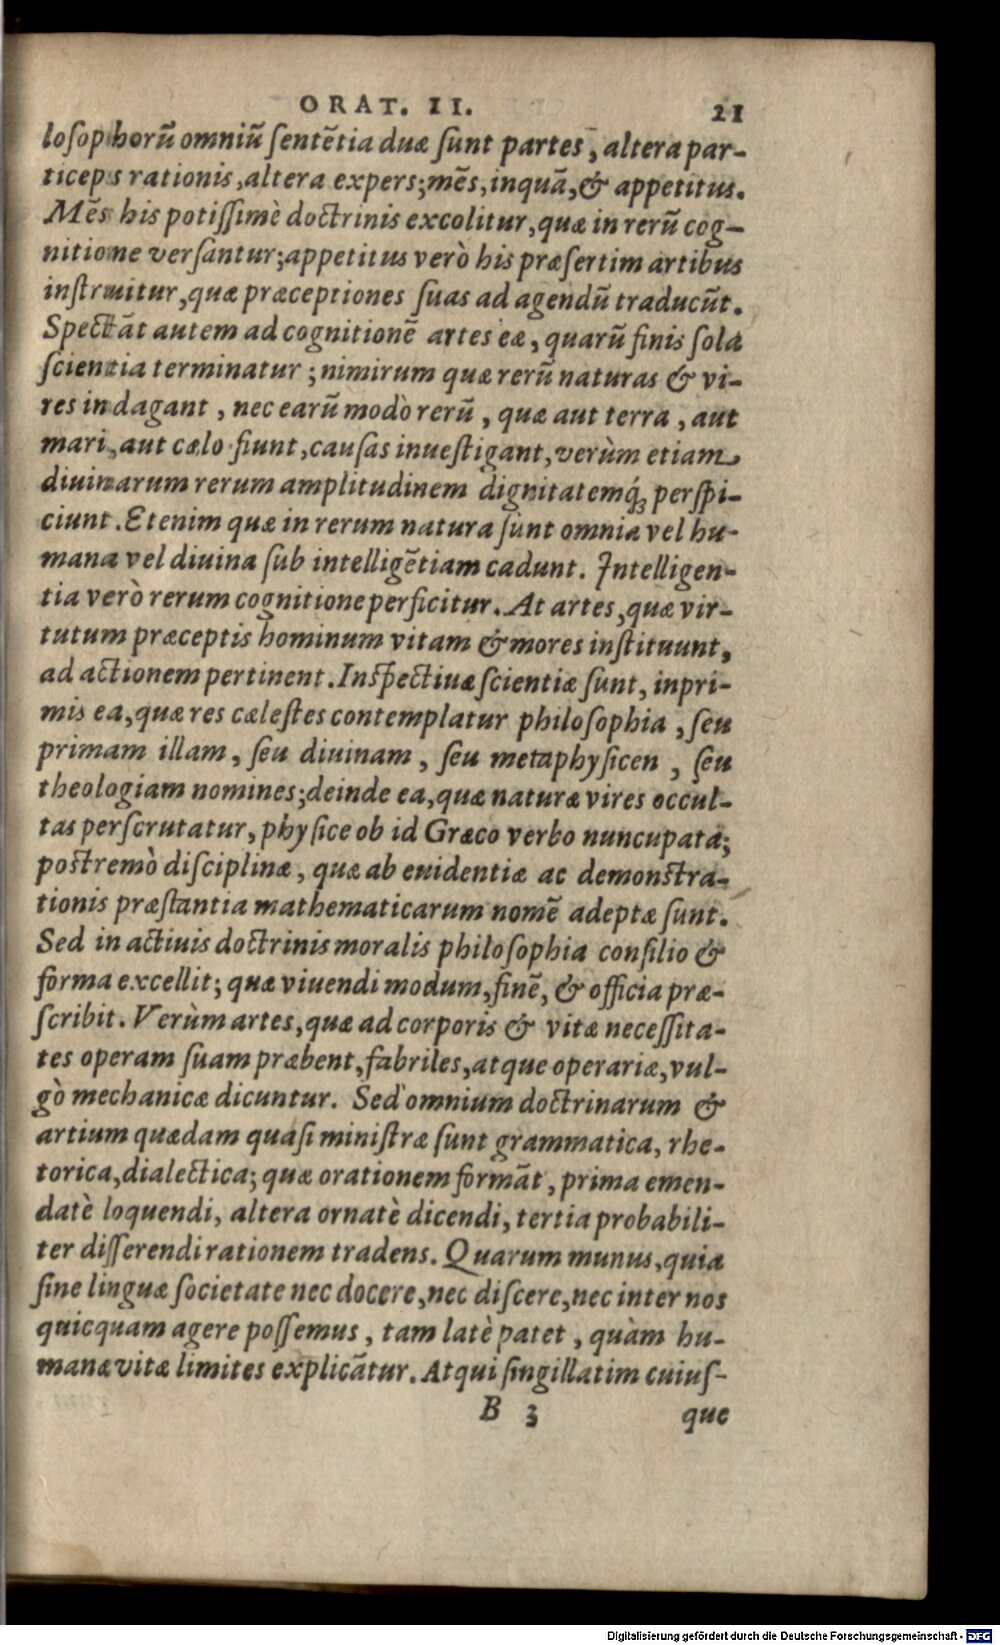 ORAT. II. 21
loſophorũ omniũ ſentẽtia duæ ſunt partes, altera par-
ticeps rationis, altera expers; mẽs, inquã, & appetitus.
Mẽs his potiſſimè doctrinis excolitur, quæ in rerũ cog-
nitione verſantur; appetitus verò his præſertim artibus
inſtruitur, quæ præceptiones ſuas ad agendũ traducũt.
Spectãt autem ad cognitionẽ artes eæ, quarũ finis ſola
ſcientia terminatur; nimirum quæ rerũ naturas & vi-
res indagant, nec earũ modò rerũ, quæ aut terra, aut
mari, aut cælo fiunt, cauſas inueſtigant, verùm etiam
diuinarum rerum amplitudinem dignitatemq́; perſpi-
ciunt. Etenim quæ in rerum natura ſunt omnia vel hu-
mana vel diuina ſub intelligẽtiam cadunt. Intelligen-
tia verò rerum cognitione perficitur. At artes, quæ vir-
tutum præceptis hominum vitam & mores inſtituunt,
ad actionem pertinent. Inſpectiuæ ſcientiæ ſunt, inpri-
mis ea, quæ res cæleſtes contemplatur philoſophia, ſeu
primam illam, ſeu diuinam, ſeu metaphyſicen, ſeu
theologiam nomines; deinde ea, quæ naturæ vires occul-
tas perſcrutatur, phyſice ob id Græco verbo nuncupata;
poſtremò diſciplinæ, quæ ab euidentiæ ac demonſtra-
tionis præſtantia mathematicarum nomẽ adeptæ ſunt.
Sed in actiuis doctrinis moralis philoſophia conſilio &
forma excellit; quæ viuendi modum, finẽ, & officia præ-
ſcribit. Verùm artes, quæ ad corporis & vitæ neceſſita-
tes operam ſuam præbent, fabriles, atque operariæ, vul-
gò mechanicæ dicuntur. Sed omnium doctrinarum &
artium quædam quaſi miniſtræ ſunt grammatica, rhe-
torica, dialectica; quæ orationem formãt, prima emen-
datè loquendi, altera ornatè dicendi, tertia probabili-
ter diſſerendi rationem tradens. Quarum munus, quia
ſine linguæ ſocietate nec docere, nec diſcere, nec inter nos
quicquam agere poſſemus, tam latè patet, quàm hu-
manæ vitæ limites explicãtur. Atqui ſingillatim cuiuſ-
B 3 que
Digitalisierung gefördert durch die Deutsche Forschungsgemeinschaft - DFG